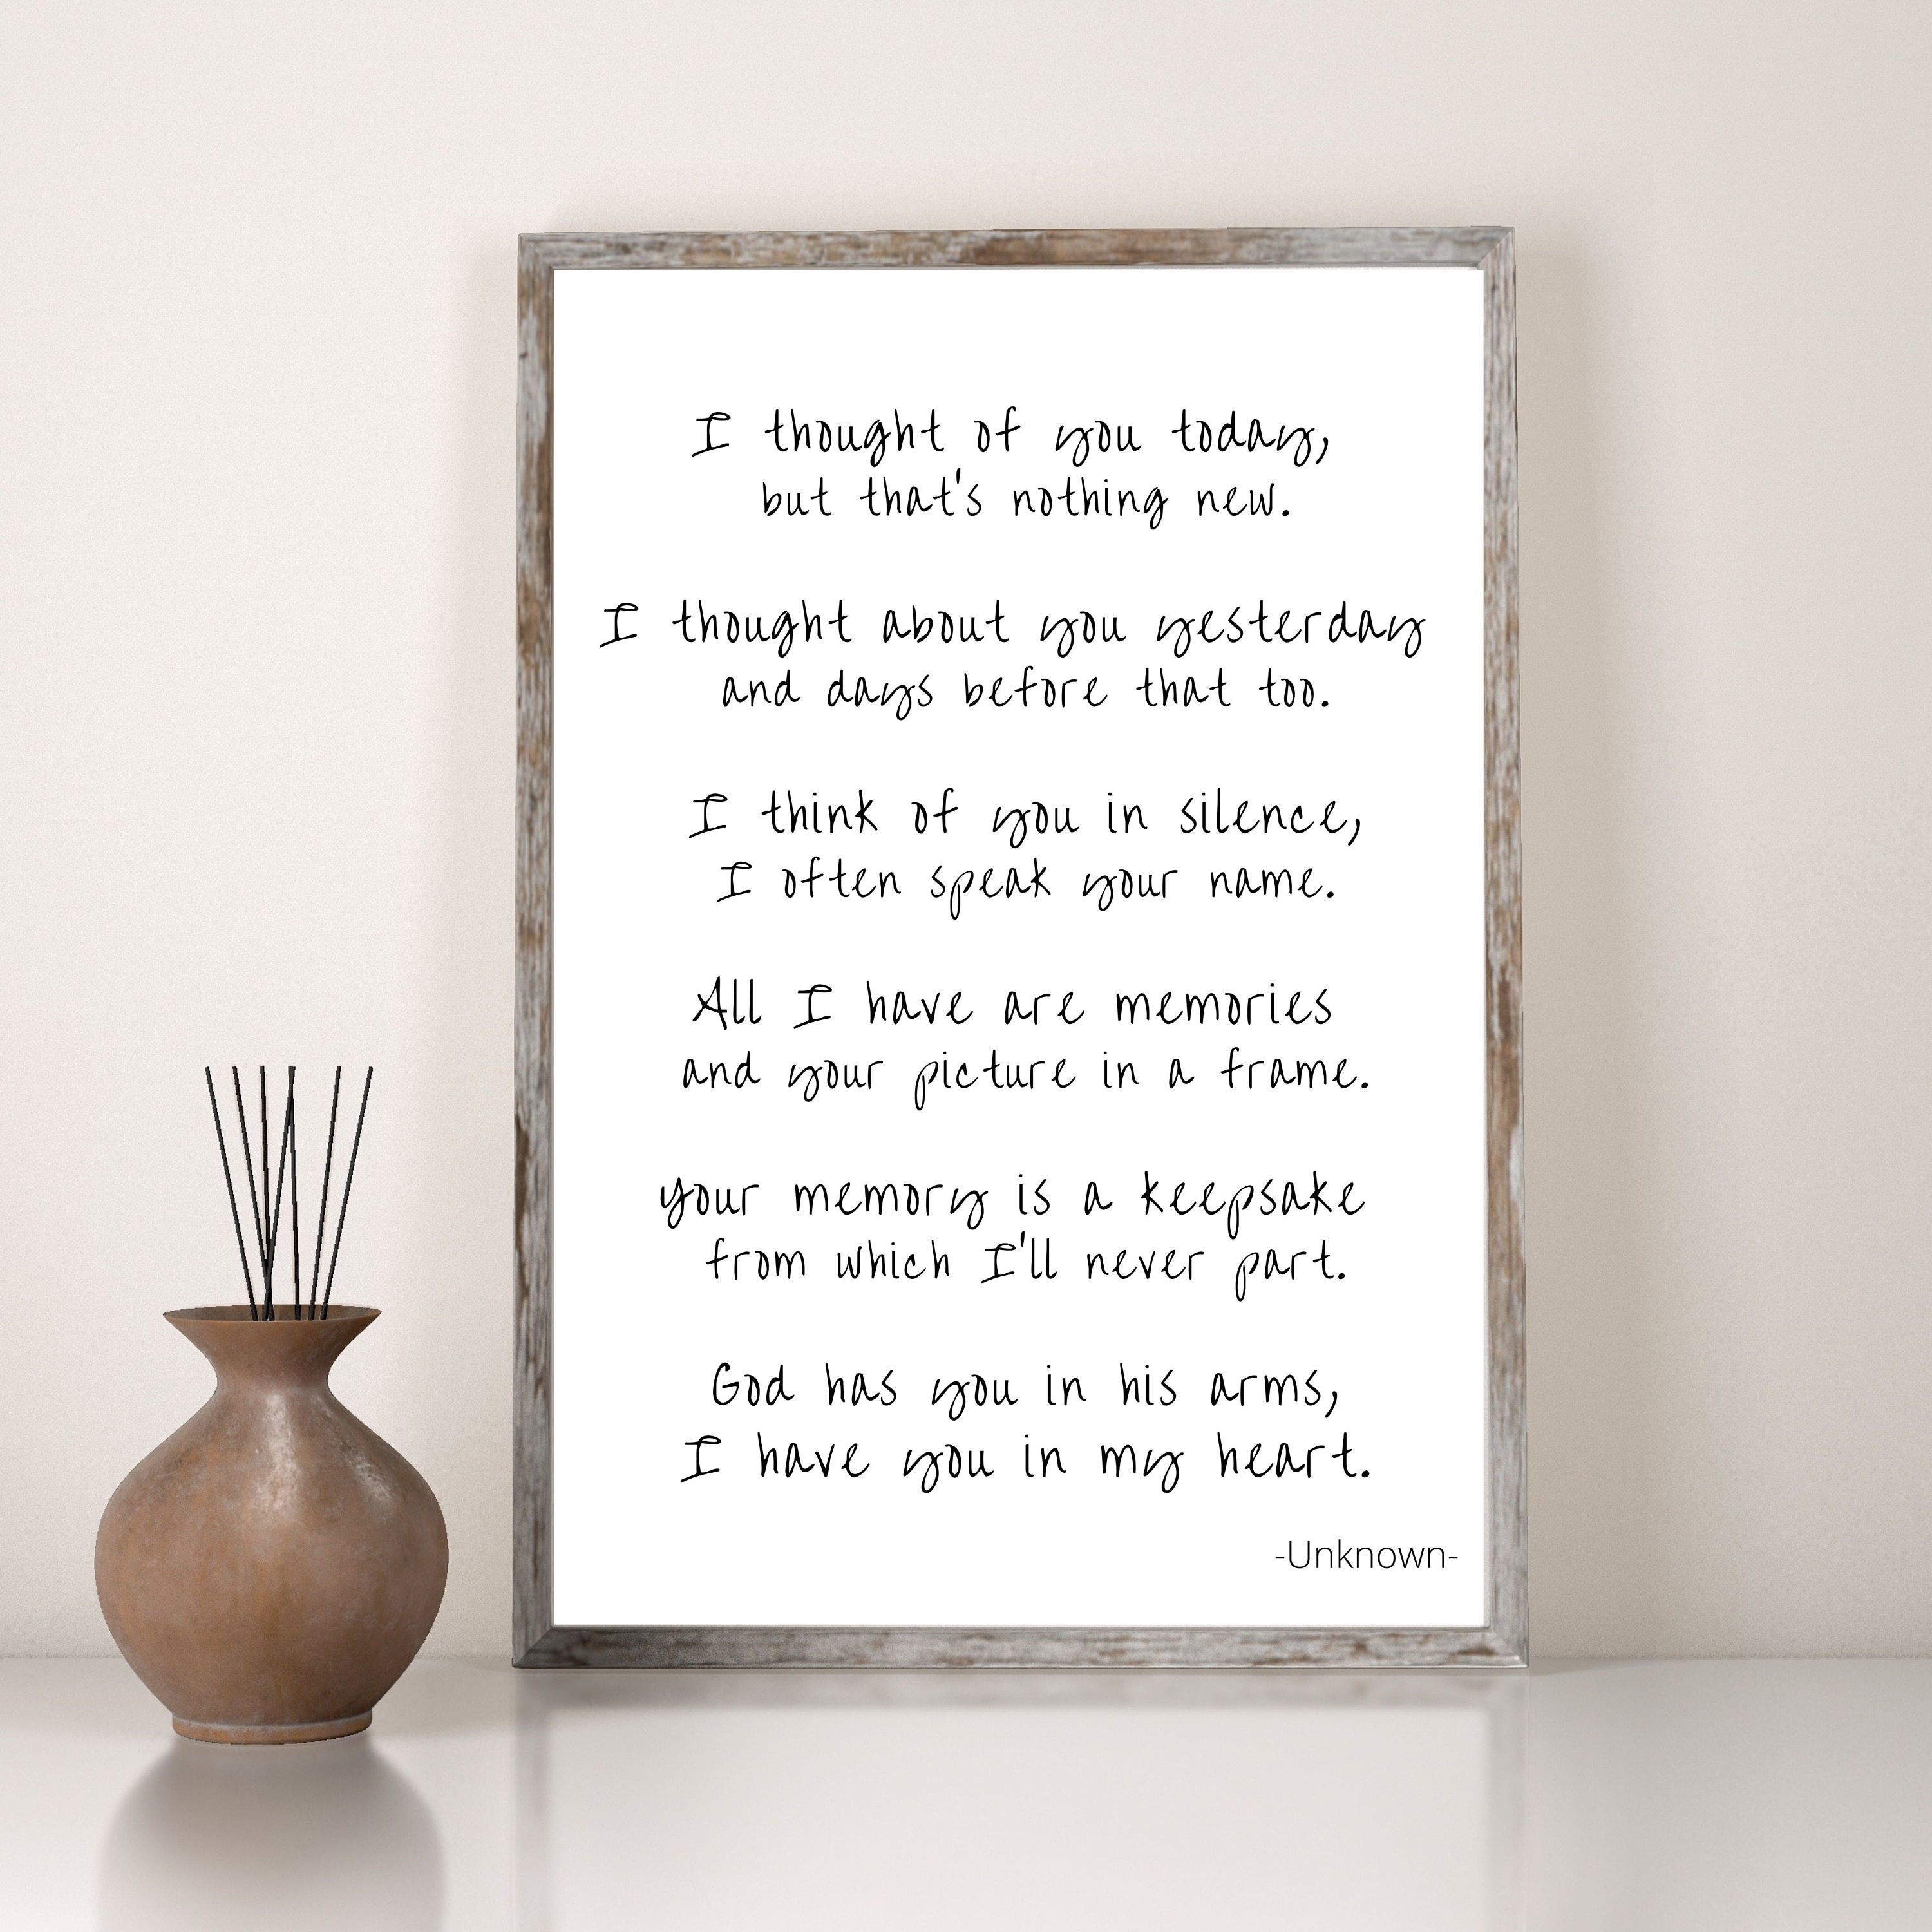 I thought of you today,
but that's nothing new.
I thought about you yesterday
and days before that too.
I think of you in silence,
I often speak your name.
All I have are memories
and your picture in a frame.
your memory is a keepsake
from which I'll never part.
God has you in his arms,
I have you in my heart.
-Unknown-